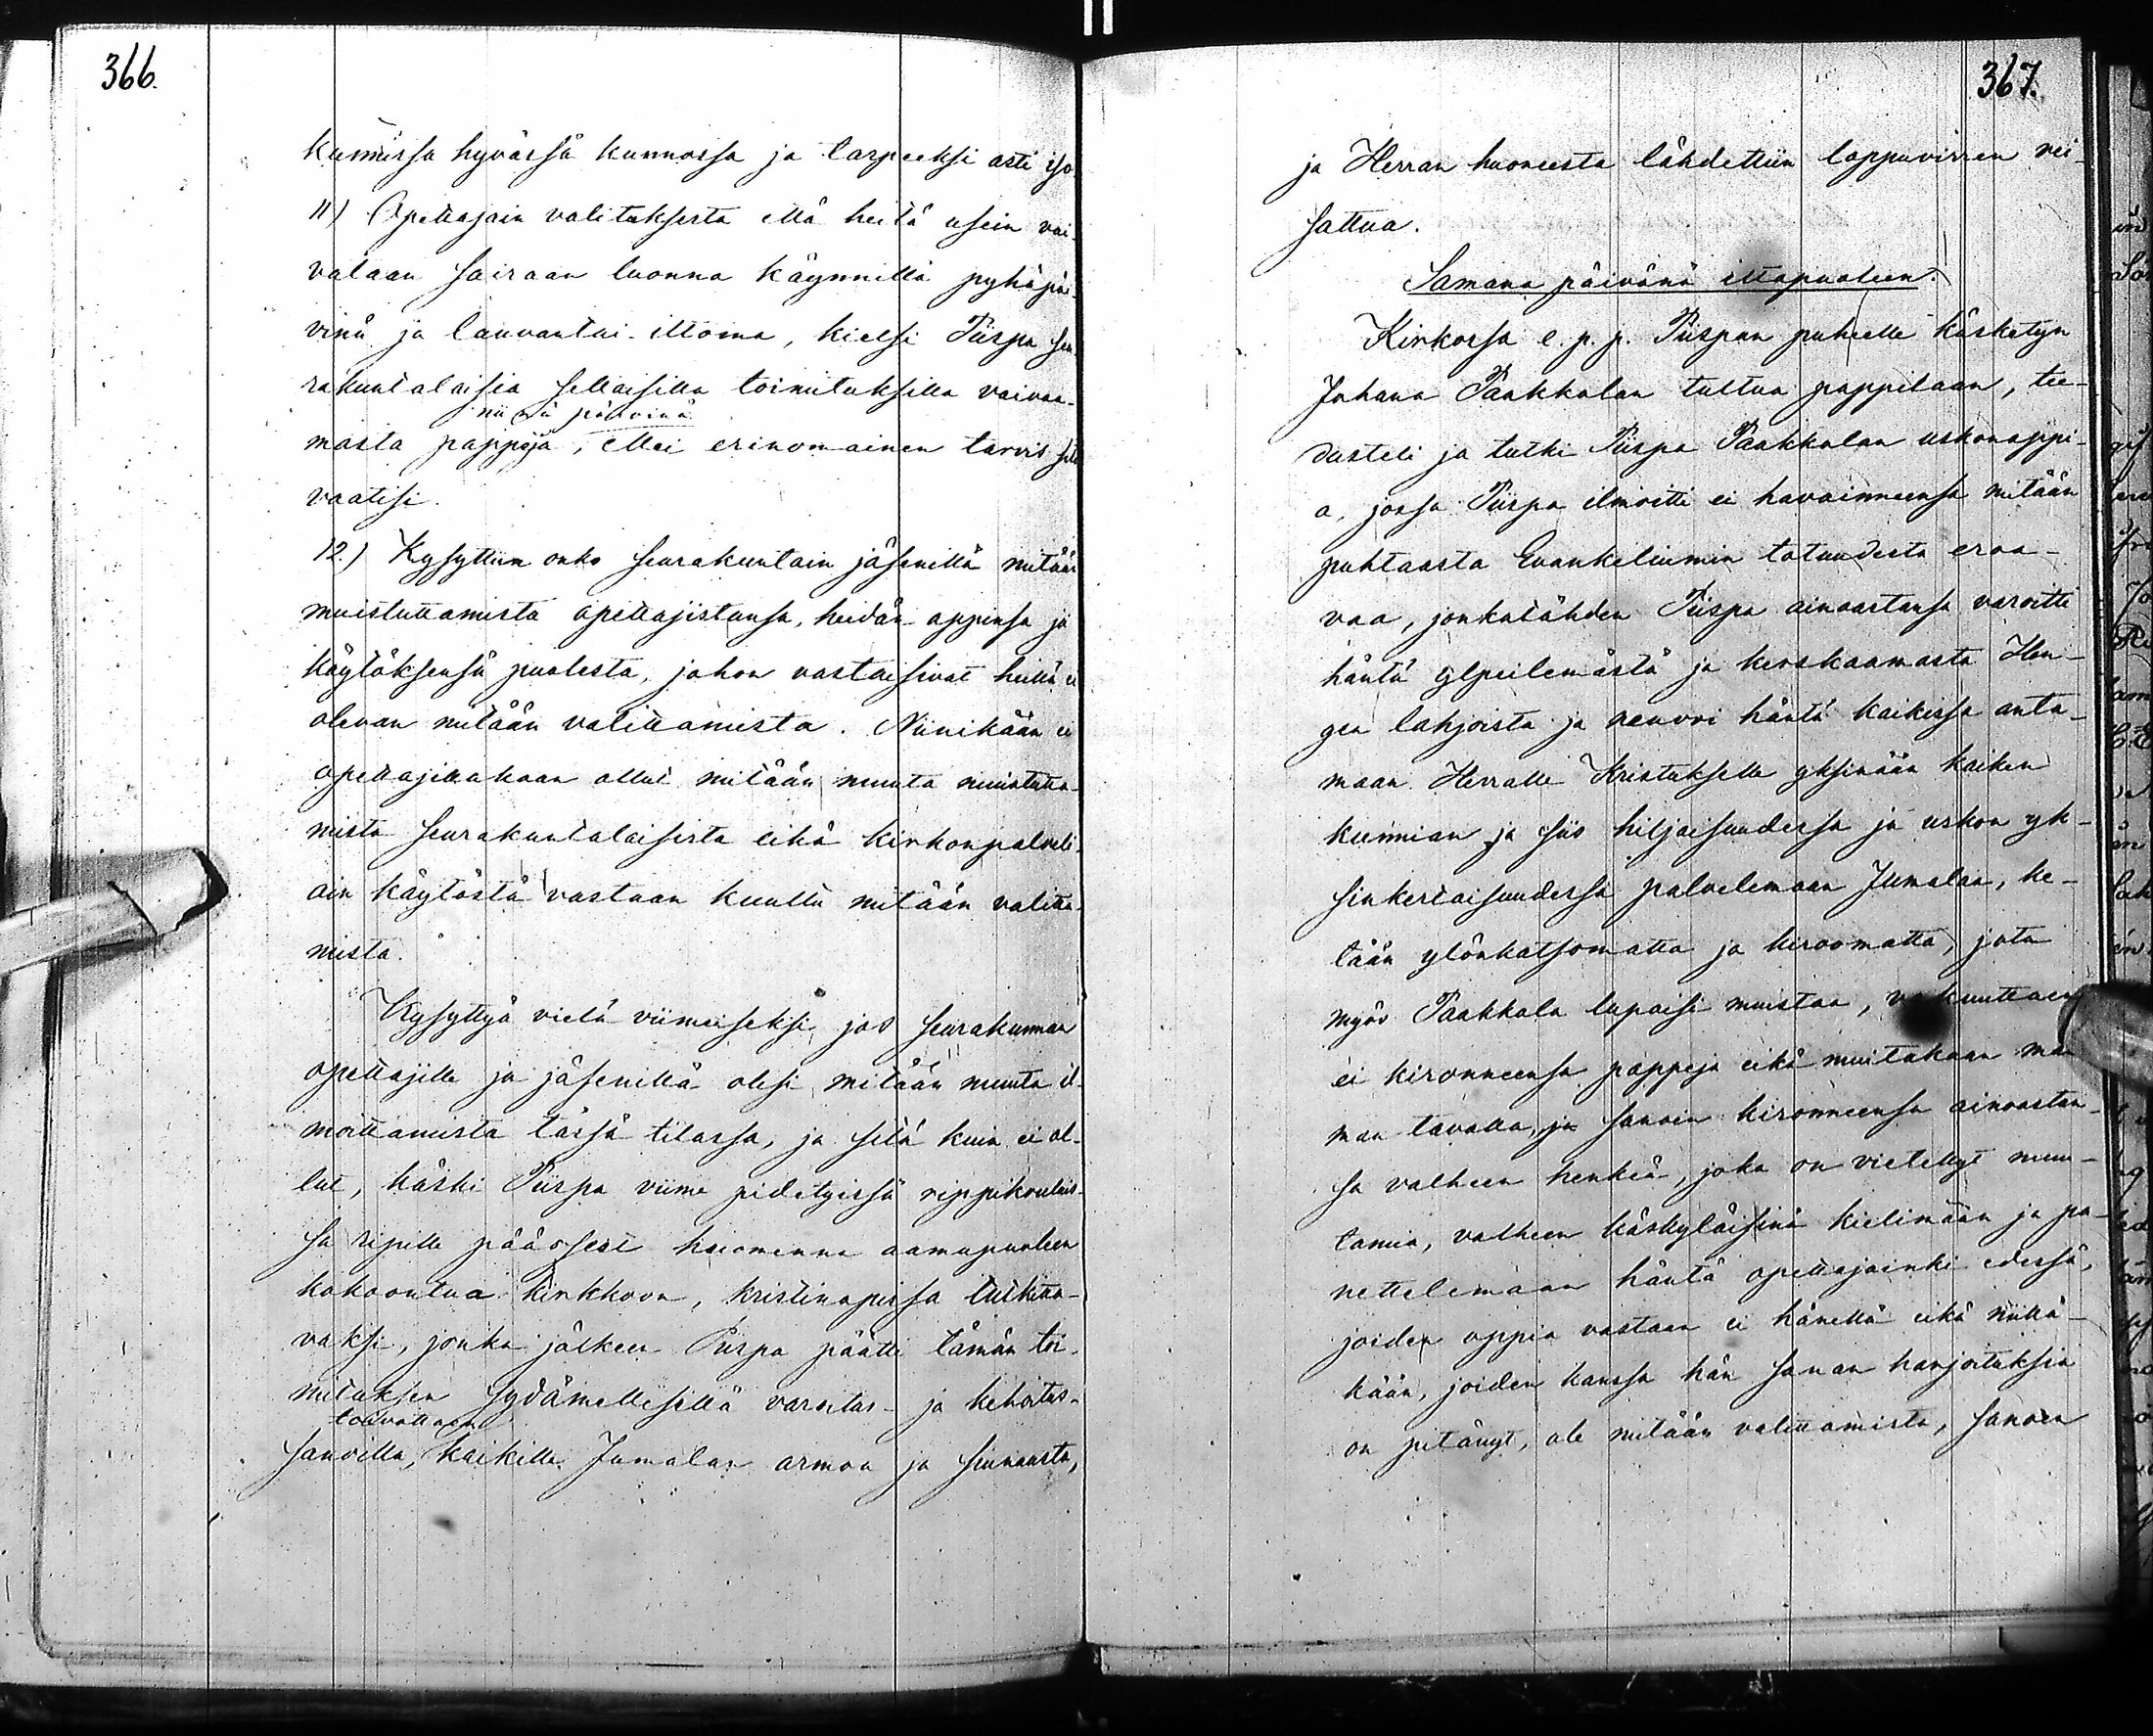 366.
kunnissa hyvässä kunnossa ja tarpeeksi asti iso
11) Opettajain valituksesta että heitä usein vai-
vataan sairaan luonna käynnillä pyhäpäi-
vinä ja lauvantai-iltoina, kielsi Piispa seu-
rakuntalaisia sellaisilla toimituksilla vaivaa-
niinä päivinä
masta pappeja, ellei erinomainen tarvis sitä
vaatisi.
12.) Kysyttiin onko seurakuntain jäsenillä mitään
muistuttamista opettajistansa, heidän oppinsa ja
käytöksensä puolesta, johon vastaisivat heillä ei
olevan mitään valittamista. Niinikään ei
opettajillakaan ollut mitään muuta muistutta-
mista seurakuntalaisista eikä kirkonpalveli-
ain käytöstä vastaan kuultu mitään valitta-
mista.
Kysyttyä vielä viimeiseksi jos seurakunnan
opettajille ja jäsenillä olisi mitään muuta il-
moittamista tässä tilassa, ja sitä kuin ei ol-
lut, käski Piispa viime pidetyissä rippikouluis-
sa ripille päässeet huomenna aamupuoleen
kokoontua kirkkoon, kristinopissa tutkitta-
vaksi, jonka jälkeen Piispa päätti tämän toi-
mituksen sydämellisellä varoitus- ja kehoitus-
toivottaen
sanoilla, kaikille Jumalan armoa ja siunausta,
367.
ja Herran huoneesta lähdettiin loppuvirren vei-
sattua.
Samana päivänä iltapuoleen.
Kirkossa e. p. p. Piispan puheelle käsketyn
Juhana Paakkolan tultua pappilaan, tie-
dusteli ja tutki Piispa Paakkolan uskonoppi-
a, jossa Piispa ilmoitti ei havainneensa mitään
puhtaasta Evankeliumin totuudesta eroa-
vaa, jonkatähden Piispa ainoastansa varoitti
häntä ylpeilemästä ja kerskaamasta Hen-
gen lahjoista ja neuvoi häntä kaikissa anta-
maan Herralle Kristukselle yksinään kaiken
kunnian ja siis hiljaisuudessa ja uskon yk-
sinkertaisuudessa palvelemaan Jumalaa, ke-
tään ylönkatsomatta ja kiroomatta, jota
myös Paakkola lupaisi muistaa, vakuuttaen
ei kironneensa pappeja eikä muitakaan
man tavalla, ja sanoin kironneensa ainoastan-
sa valheen henkeä, joka on vietellyt muu-
tamia, valheen käskyläisinä kielimään ja pa-
nettelemaan häntä opettajainki edessä,
joiden oppia vastaan ei hänellä eikä niillä-
kään, joiden kanssa hän sanan harjoituksia
on pitänyt, ole mitään valittamista, sanoen